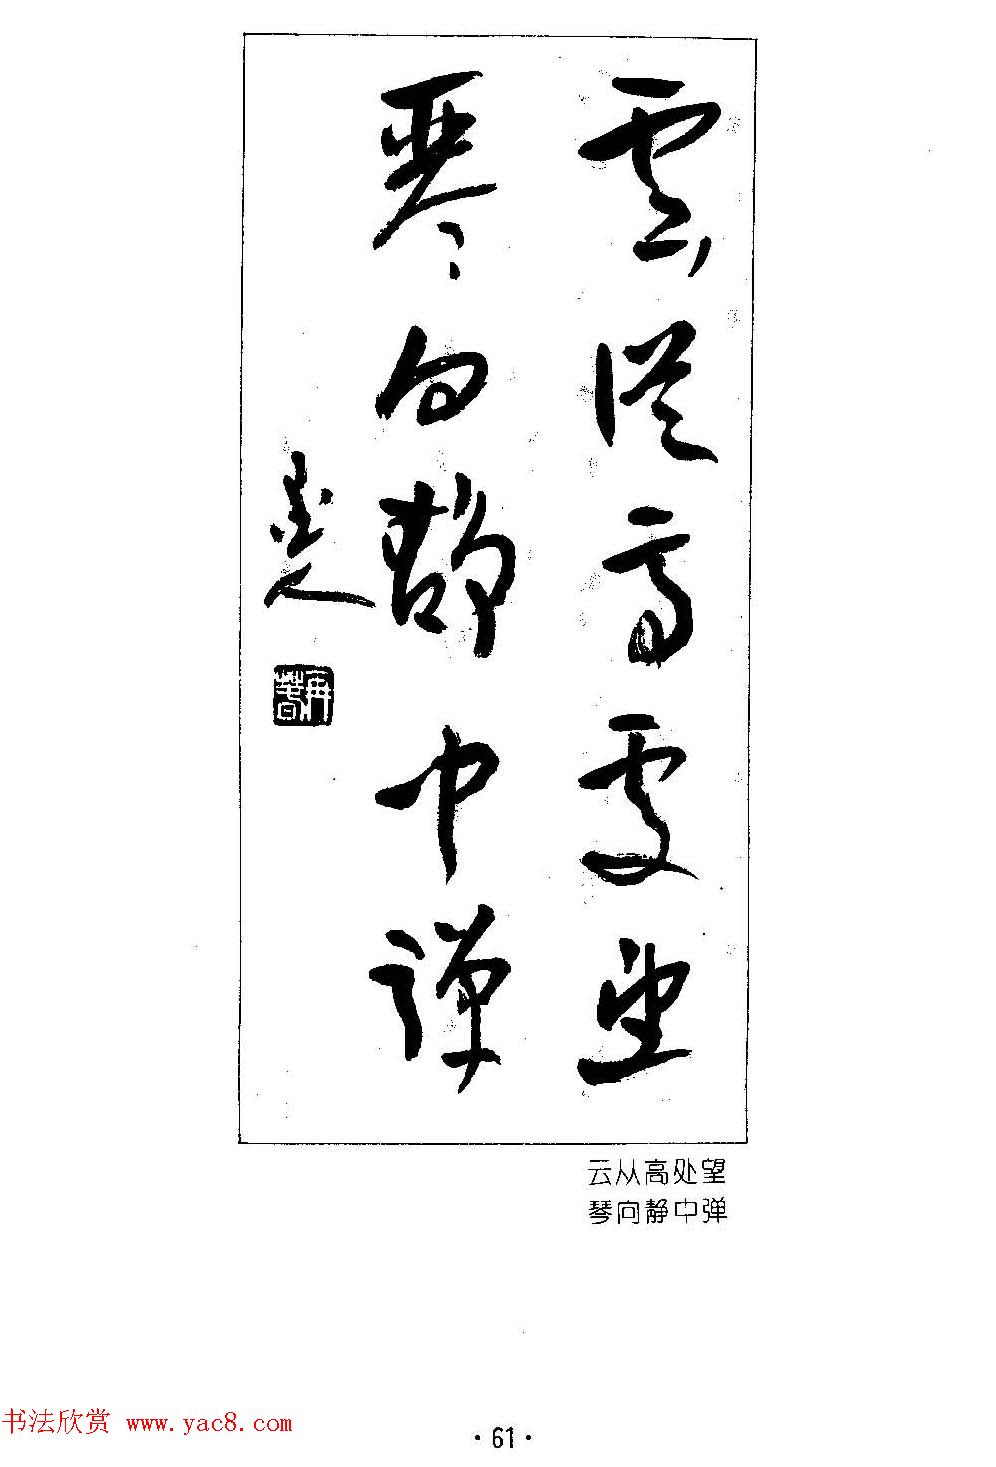 雲從高處望
琴向靜中彈
云从高处望
琴向静中弹
书法欣赏 www.yac8.com
·61·